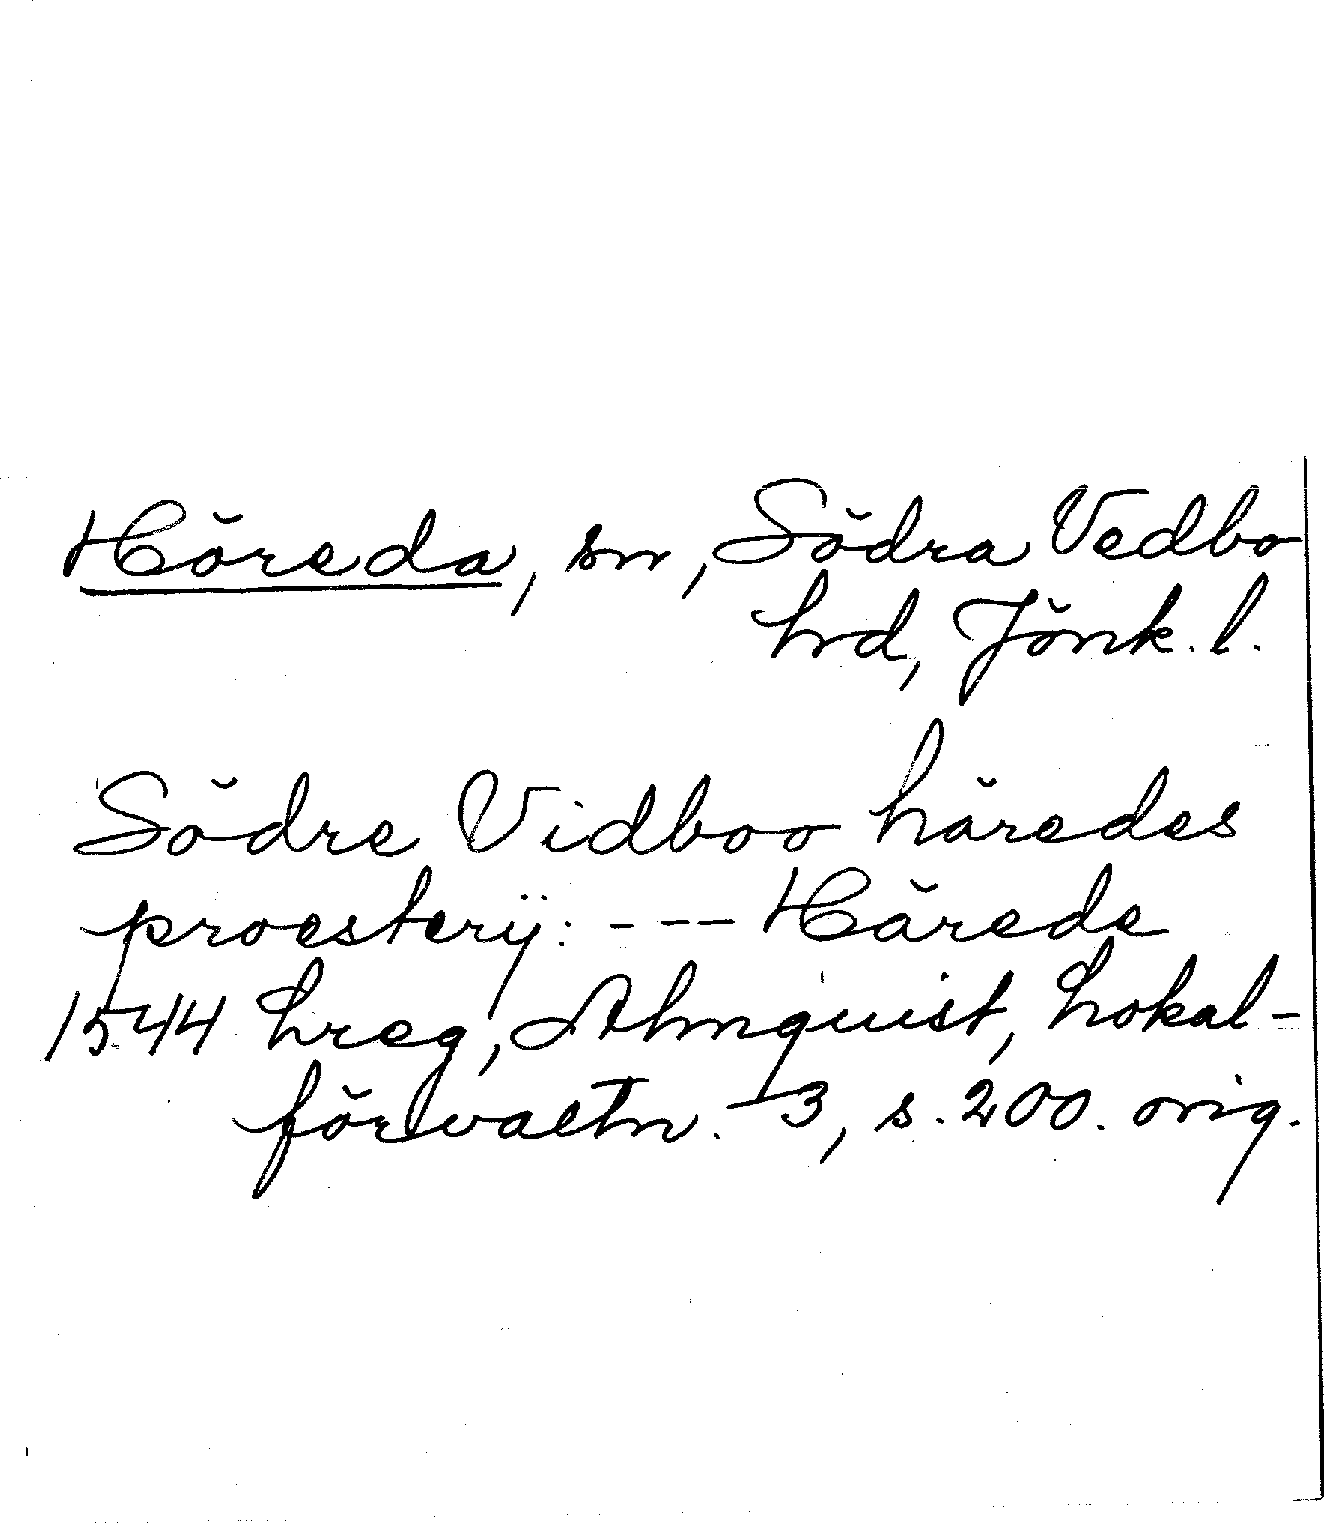 Höreda, sn, Södra Vedbo
hd, Jönk. l.
Södre Vidboo häredes
proesterÿ: --- Härede
1544 hreg, Almquist, Lokal-
förvaltn. 3, s. 200. orig.